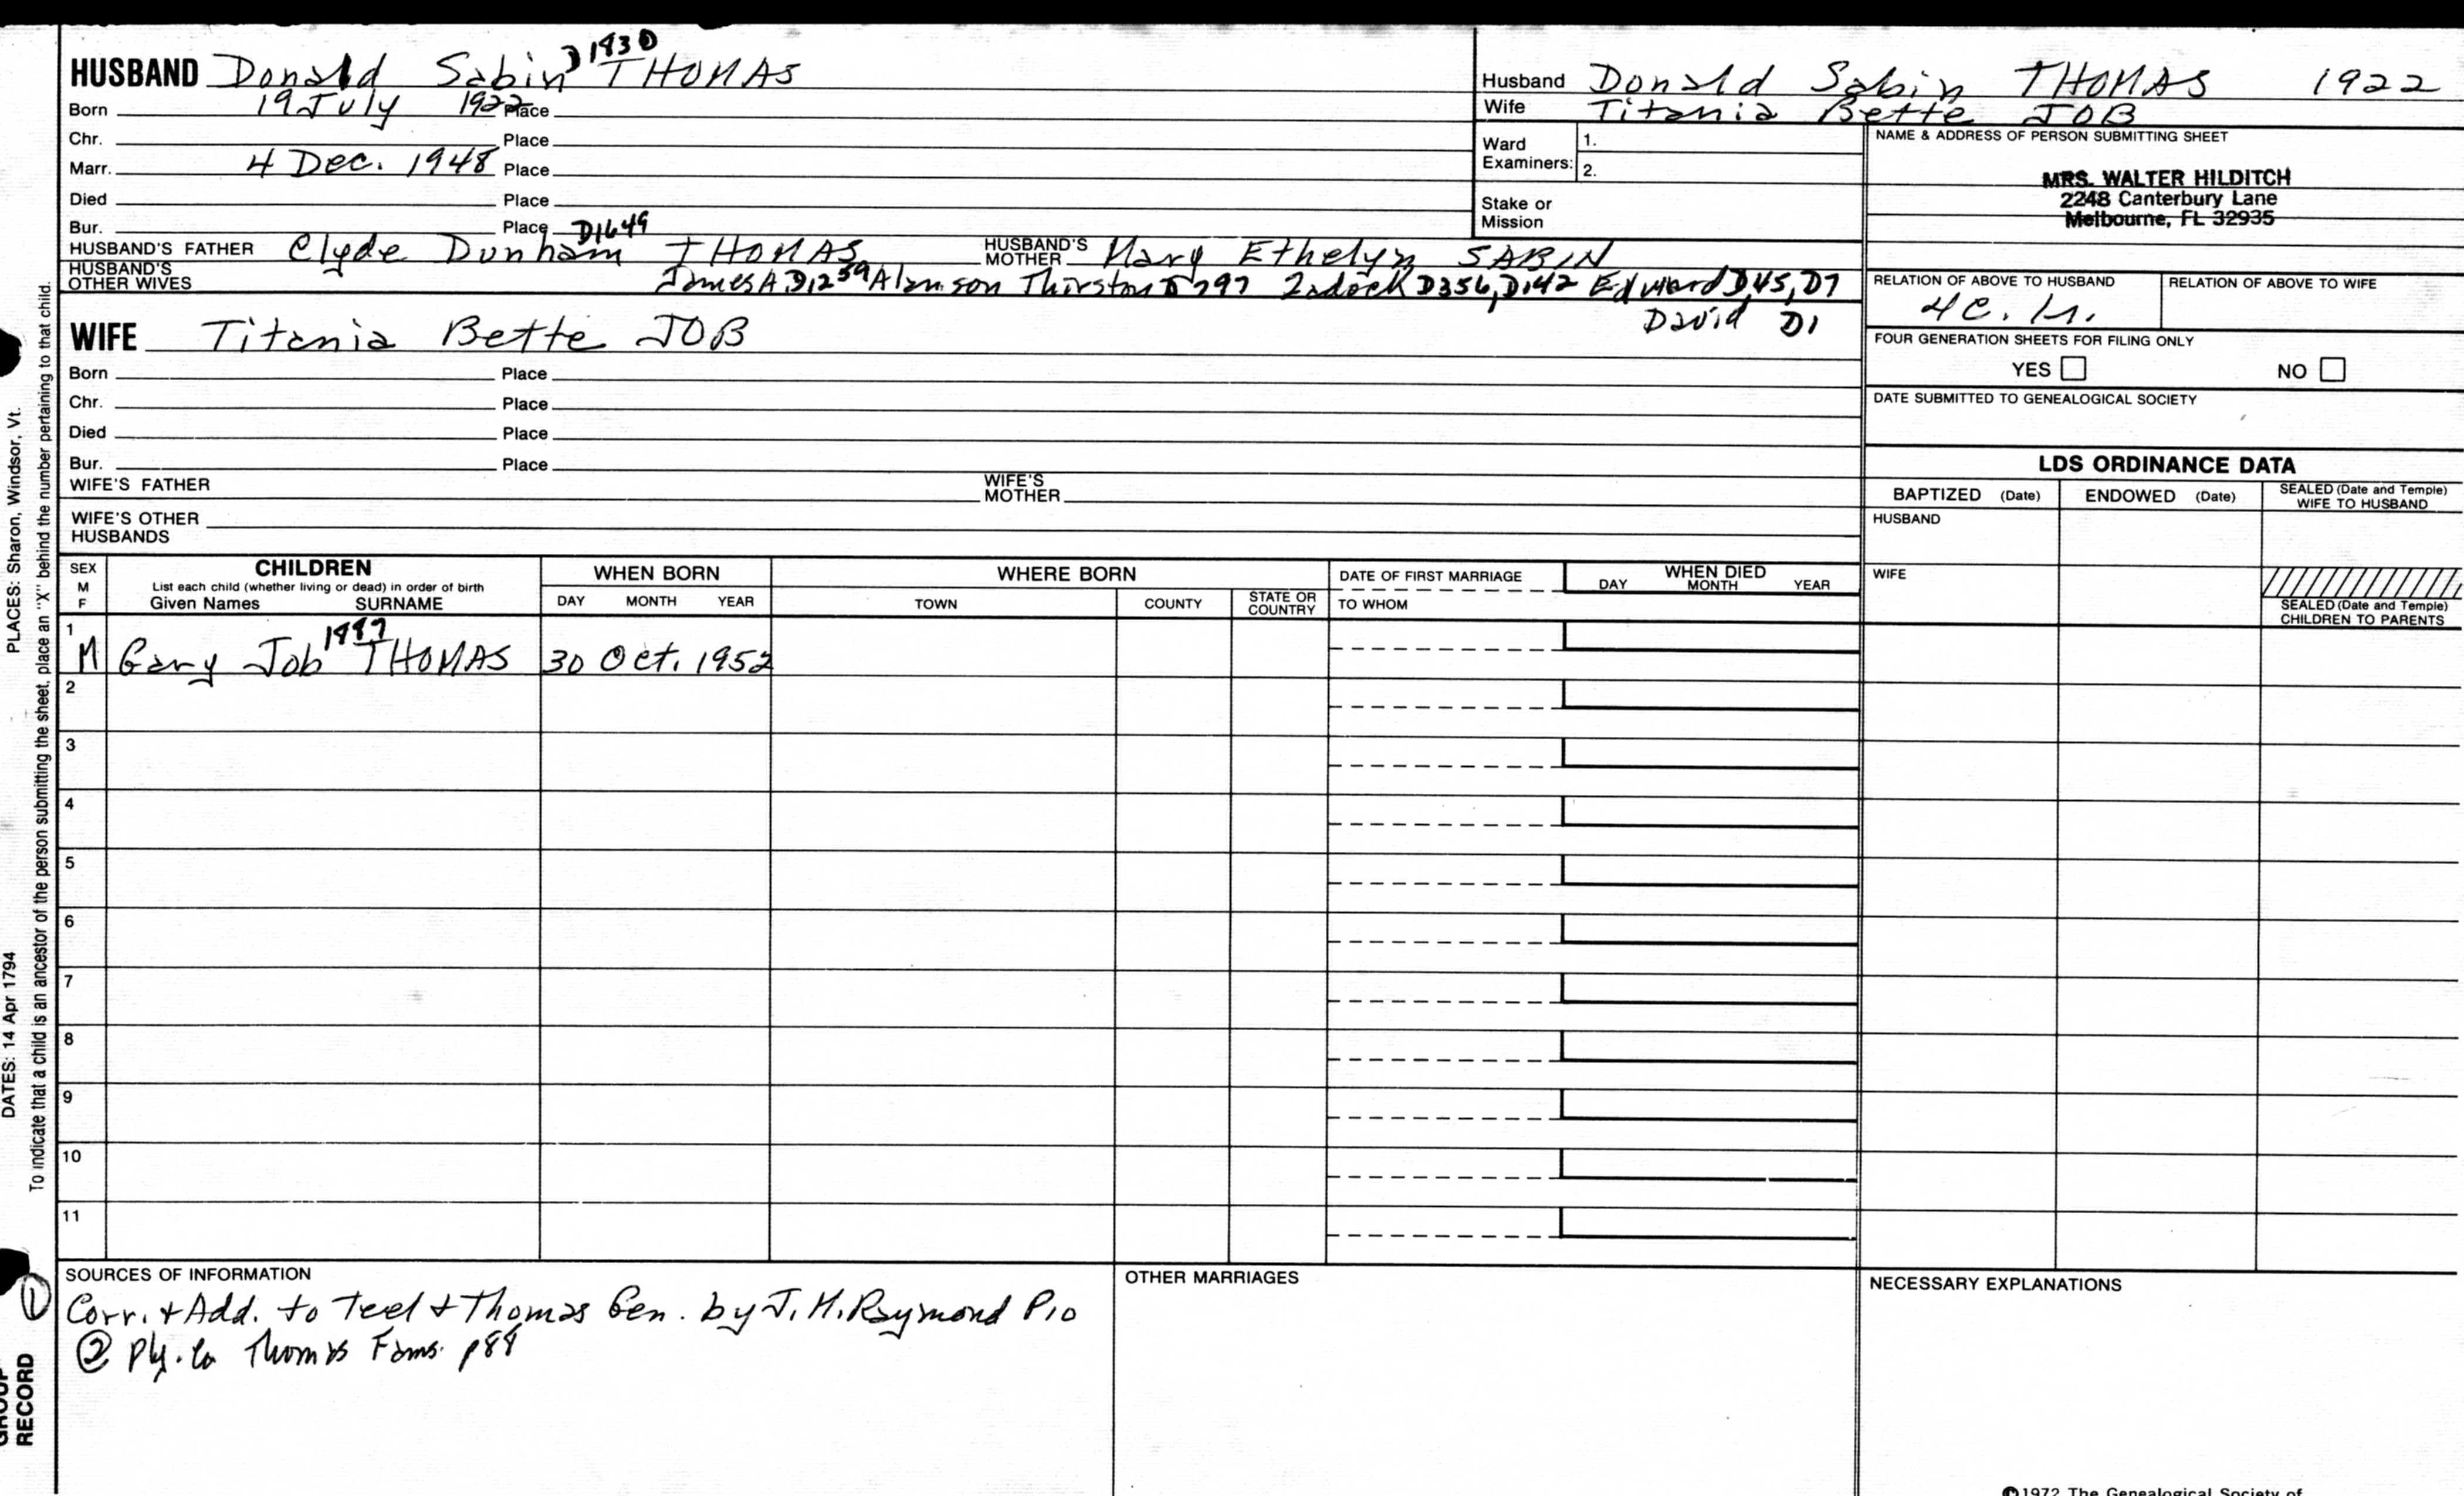 HUSBAND Donald Sabin D1930 THOMAS
Born 19 July 1922 Place
Chr. Place
Marr. 4 Dec. 1948 Place
Died Place
Bur. Place D1649
HUSBAND'S FATHER Clyde Dunham THOMAS HUSBAND'S MOTHER Mary Ethelyn SABIN
HUSBAND'S OTHER WIVES James A D1259 Alanson Thurston D797 Zadock D356, D142 Edward D45, D7
David D1
WIFE Titania Bette JOB
Born Place
Chr. Place
Died Place
Bur. Place
WIFE'S FATHER WIFE'S MOTHER
WIFE'S OTHER HUSBANDS
Husband Donald Sabin THOMAS 1922
Wife Titania Bette JOB
Ward Examiners: 1.
2.
Stake or Mission
NAME & ADDRESS OF PERSON SUBMITTING SHEET
MRS. WALTER HILDITCH
2248 Canterbury Lane
Melbourne, FL 32935
RELATION OF ABOVE TO HUSBAND RELATION OF ABOVE TO WIFE
FOUR GENERATION SHEETS FOR FILING ONLY
YES NO
DATE SUBMITTED TO GENEALOGICAL SOCIETY
LDS ORDINANCE DATA
BAPTIZED (Date) ENDOWED (Date) SEALED (Date and Temple) WIFE TO HUSBAND
HUSBAND
WIFE
SEALED (Date and Temple) CHILDREN TO PARENTS
SEX M F
CHILDREN
List each child (whether living or dead) in order of birth
Given Names SURNAME
WHEN BORN
DAY MONTH YEAR
WHERE BORN
TOWN COUNTY STATE OR COUNTRY
DATE OF FIRST MARRIAGE
TO WHOM
WHEN DIED
DAY MONTH YEAR
1 M Gary Job THOMAS 30 Oct. 1952
2
3
4
5
6
7
8
9
10
11
SOURCES OF INFORMATION
① Corr. + Add. to Teel + Thomas Gen. by J. H. Raymond P10
② Ply. Co Thomas Fams. p88
OTHER MARRIAGES
NECESSARY EXPLANATIONS
©1972 The Genealogical Society of
PLACES: Sharon, Windsor, Vt.
DATES: 14 Apr 1794
To indicate that a child is an ancestor of the person submitting the sheet, place an "X" behind the number pertaining to that child.
GROUP
RECORD